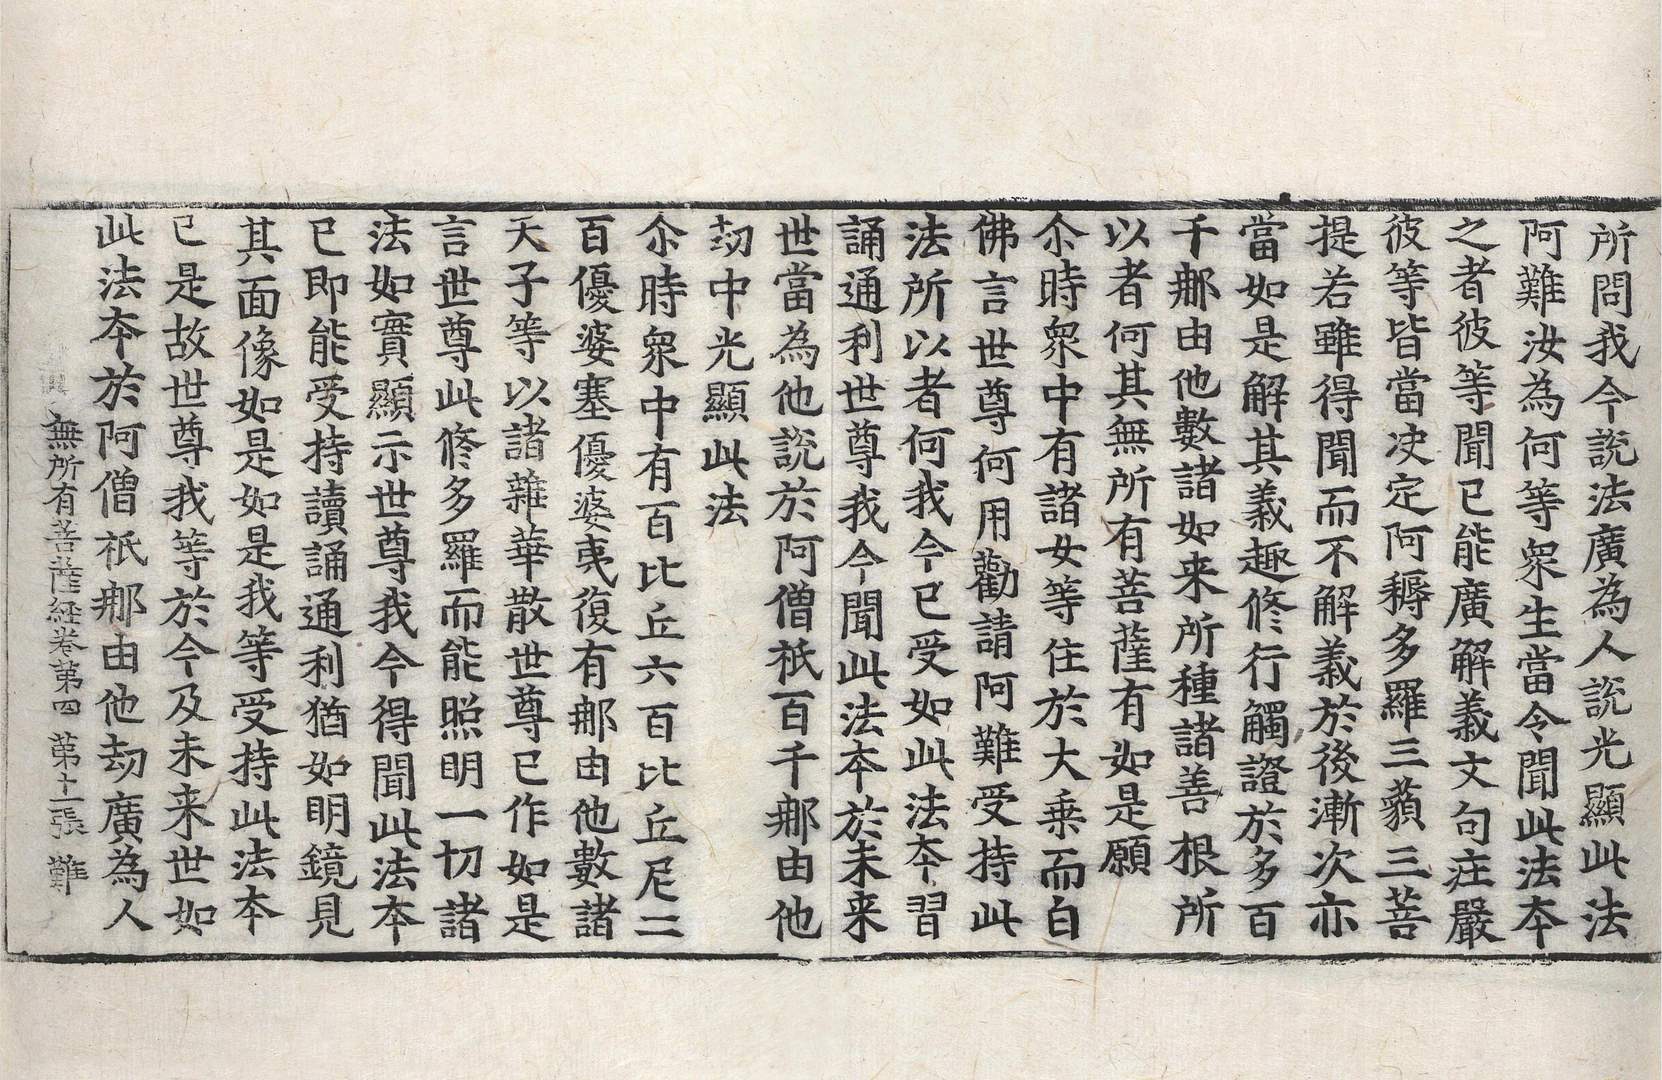 所問我今說法廣為人說光顯此法
阿難汝為何等衆生當令聞此法夲
之者彼等聞已能廣解義文句疘嚴
彼等皆當决定阿耨多羅三藐三菩
提若雖得聞而不解義於後漸次亦
當如是解其義趣修行觸證於多百
千𨚗由他數諸如来所種諸善根所
以者何其無所有菩薩有如是願
尒時衆中有諸女等住於大乗而白
佛言世尊何用勸請阿難受持此
法所以者何我今已受如此法夲習
誦通利世尊我今聞此法夲於未来
世當為他說於阿僧祇百千𨚗由他
劫中光顯此法
尒時衆中有百比丘六百比丘尼二
百優婆塞優婆夷復有𨚗由他數諸
天子等以諸雜華散世尊已作如是
言世尊此修多羅而能照明一切諸
法如實顯示世尊我今得聞此法夲
已即能受持讀誦通利猶如明鏡見
其面像如是如是我等受持此法夲
已是故世尊我等於今及未来世如
此法夲於阿僧祇𨚗由他劫廣為人
無所有菩薩経卷第四 第十一張 難